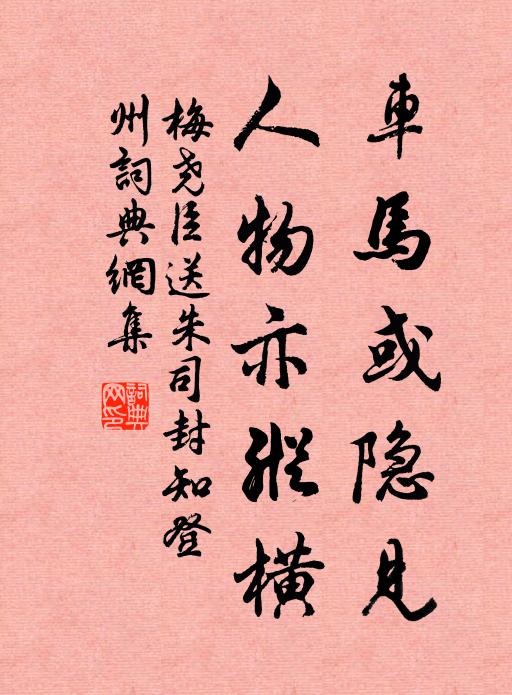 車馬或隐見
人物亦縱橫
梅尧臣送朱司封知登
州詞典網集
詞典
网印